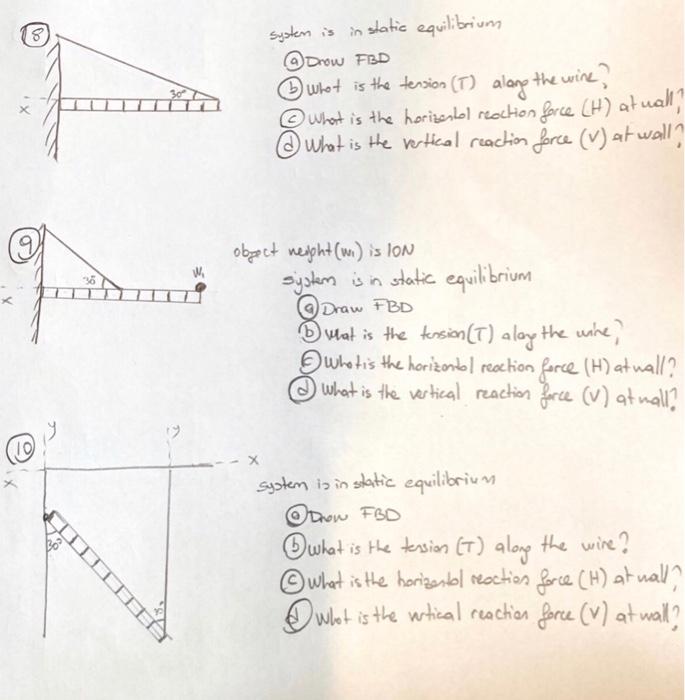 8 system is in static equilibrium
a Draw FBD
30° b What is the tension (T) along the wire?
x c What is the horizontal reaction force (H) at wall?
d What is the vertical reaction force (V) at wall?
9 object weight (W₁) is 10N
30° W₁ system is in static equilibrium
x a Draw FBD
b What is the tension (T) along the wire?
c What is the horizontal reaction force (H) at wall?
d What is the vertical reaction force (V) at wall?
y y
10 x
x system is in static equilibrium
a Draw FBD
30° b what is the tension (T) along the wire?
c what is the horizontal reaction force (H) at wall?
d What is the vrtical reaction force (V) at wall?